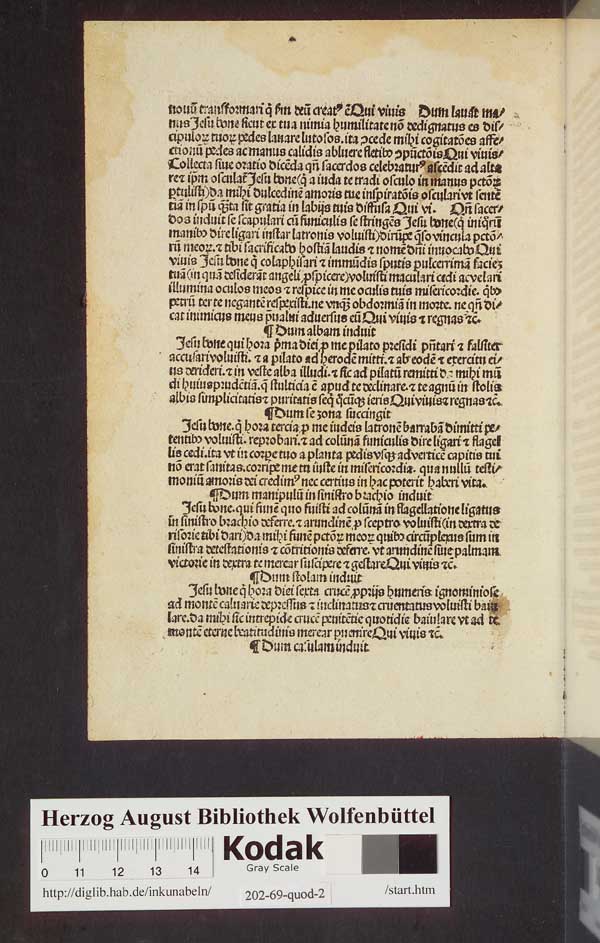 nouū transformari q̄ ẜm deū creatꝰ ē Qui viuis Dum lauāt ma⸗
nus Jesu bone sicut ex tua nimia humilitate nō dedignatus es dis⸗
cipuloꝝ tuoꝝ pedes lauare lutosos. ita ꝯcede mihi cogitatōes affe⸗
ctionū pedes ac manus calidis abluere fletibꝰ ꝯpūctōis Qui viuis⸗
Collecta siue oratio dicēda qn̄ sacerdos celebraturꝰ ascēdit ad alta
re ⁊ ipm̄ osculat᷑ Jesu bone (q̄ a iuda te tradi osculo in manus pctōꝝ
ꝑtulisti) da mihi dulcedinē amoris tue inspiratōis osculari vt sentē
tia in spū q̄ꝫta sit gratia in labijs tuis diffusa Qui vi. Qn̄ sacer⸗
dos induit se scapulari cū funiculis se stringēs Jesu bone (q̄ iniq̄rū
manibꝰ dire ligari instar latronis voluisti) dirūpe q̄so vincula pctō⸗
rū meoꝝ. ⁊ tibi sacrificabo hostiā laudis ⁊ nomē dn̄i inuocabo Qui
viuis Jesu bone q̄ colaphisari ⁊ immūdis sputis pulcerrimā faciez
tuā (in quā desiderāt angeli ꝓspicere) voluisti maculari cedi ac velari
illumina oculos meos ⁊ respice in me oculis tuis misericordie. q̄bꝰ
petrū ter te negantē respexisti. ne vnq̄ꝫ obdormiā in morte. ne qn̄ di⸗
cat inimicus meus p̄ualui aduersus eū Qui viuis ⁊ regnas ⁊c̄.
¶ Dum albam induit
Jesu bone qui hora p̄ma diei ꝓ me pilato presidi pn̄tari ⁊ falsiter
accusari voluisti. ⁊ a pilato ad herodē mitti. ⁊ ab eodē ⁊ exercitu ei⸗
us derideri. ⁊ in veste alba illudi. ⁊ sic ad pilatū remitti da mihi mū
di huius prudētiā. q̄ stulticia ē apud te declinare. ⁊ te agnū in stolis
albis simplicitatis ⁊ puritatis seq̄ q̄cūqꝫ ieris Qui viuis ⁊ regnas ⁊c̄.
¶ Dum se zona succingit
Jesu bone. q̄ hora tercia ꝓ me iudeis latronē barrabā dimitti pe⸗
tentibꝰ voluisti. reprobari. ⁊ ad colūnā funiculis dire ligari ⁊ flagel
lis cedi. ita vt in corꝑe tuo a planta pedis vsqꝫ ad verticē capitis tui
nō erat sanitas. corripe me tu iuste in misericordia. qua nullū testi⸗
moniū amoris dei credimꝰ nec certius in hac poterit haberi vita.
¶ Dum manipulū in sinistro brachio induit
Jesu bone. qui funē quo fuisti ad colūnā in flagellatione ligatus
in sinistro brachio deferre. ⁊ arundinē ꝓ sceptro voluisti (in dextra de
risorie tibi dari) da mihi funē pctōꝝ meoꝝ quibꝰ circūplexus sum in
sinistra detestationis ⁊ cōtritionis deferre. vt arundinē siue palmam
victorie in dextra te merear suscipere ⁊ gestare Qui viuis ⁊c̄.
¶ Dum stolam induit
Jesu bone q̄ hora diei sexta crucē ꝓprijs humeris ignominiose
ad montē caluarie depressus ⁊ inclinatus ⁊ cruentatus voluisti baiu
lare. da mihi sic intrepide crucē penitētie quotidie baiulare vt ad te
montē eterne beatitudinis merear puenire Qui viuis ⁊c̄.
¶ Dum casulam induit
Herzog August Bibliothek Wolfenbüttel
0 11 12 13 14
Kodak
Gray Scale
http://diglib.hab.de/inkunabeln/
202-69-quod-2
/start.htm